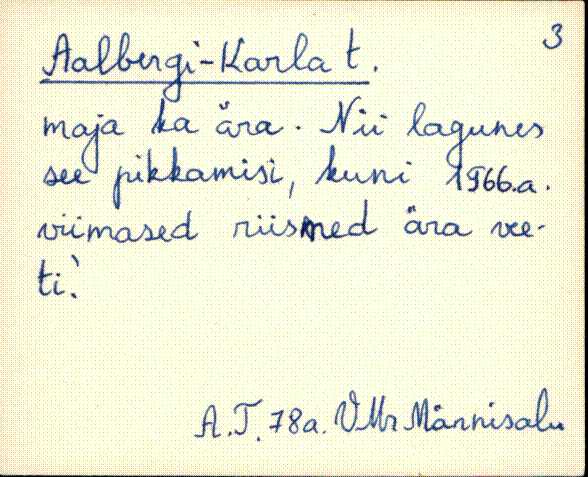 3
Aalbergi-Karla t.
maja ka ära. Nii lagunes
see pikkamisi, kuni 1966.a.
viimased riismed ära vee-
ti.`
A.T. 78a. VMr Männisalu